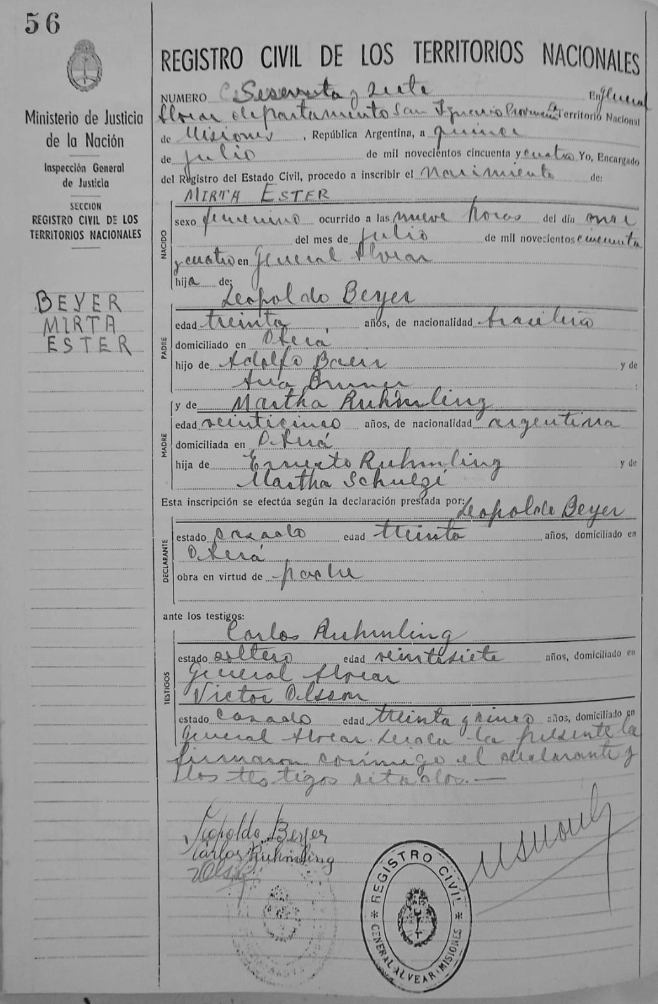 56
Ministerio de Justicia
de la Nación
Inspección General
de Justicia
SECCION
REGISTRO CIVIL DE LOS
TERRITORIOS NACIONALES
BEYER
MIRTA
ESTER
REGISTRO CIVIL DE LOS TERRITORIOS NACIONALES
NUMERO Sesenta y siete En General
Alvear departamento San Ignacio Provincia Territorio Nacional
de Misiones, República Argentina, a quince
de julio de mil novecientos cincuenta y cuatro Yo, Encargado
del Registro del Estado Civil, procedo a inscribir el nacimiento de:
MIRTA ESTER
NACIDO
sexo femenino ocurrido a las nueve horas del día once
del mes de julio de mil novecientos cincuenta
y cuatro en General Alvear
hija de:
Leopoldo Beyer
PADRE
edad treinta años, de nacionalidad brasileña
domiciliado en Oberá
hijo de Adolfo y de
Ana
y de Martha Ruhmling
MADRE
edad veinticinco años, de nacionalidad argentina
domiciliada en Oberá
hija de Ernesto Ruhmling y de
Martha
Esta inscripción se efectúa según la declaración prestada por: Leopoldo Beyer
DECLARANTE
estado casado edad treinta años, domiciliado en
Oberá
obra en virtud de padre
ante los testigos:
Carlos Ruhmling
TESTIGOS
estado soltero edad veintisiete años, domiciliado en
General Alvear
Victor Olsson
estado casado edad treinta y cinco años, domiciliado en
General Alvear. Leída la presente la
firmaron conmigo el declarante y
los testigos citados.—
Leopoldo Beyer
Carlos Ruhmling
REGISTRO CIVIL
GENERAL ALVEAR - MISIONES